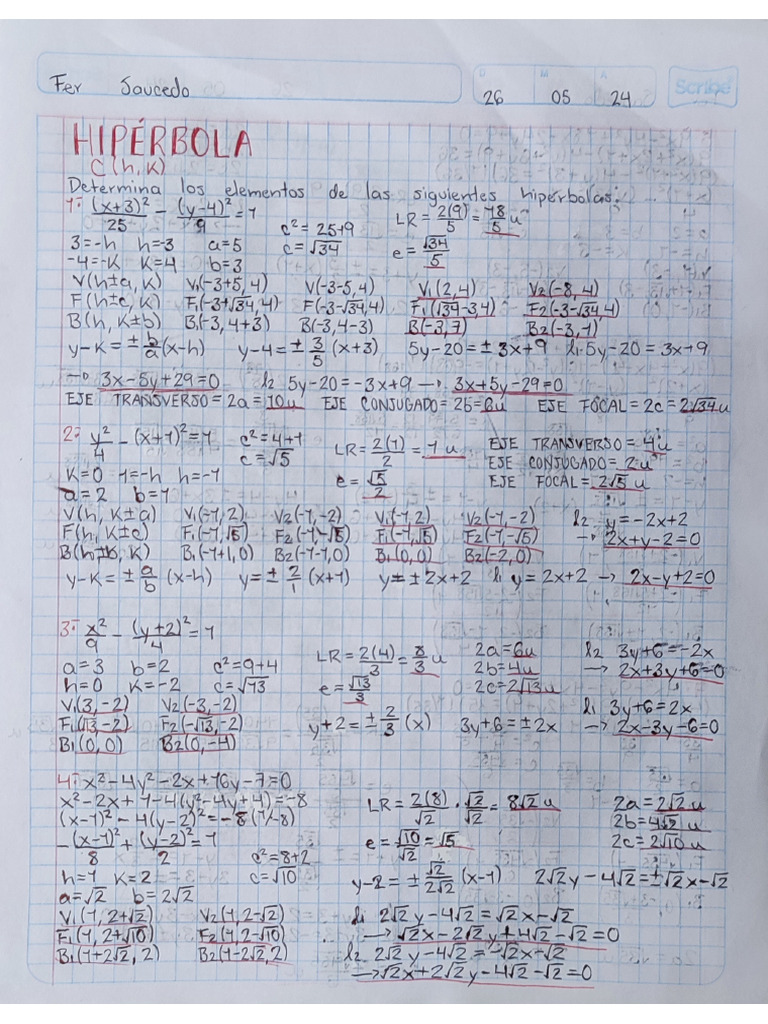 Fer Saucedo
D M A
26 05 24
Scribe
HIPÉRBOLA
C(h,K)
Determina los elementos de las siguientes hiperbolas:
1: (x+3)²/25 - (y-4)²/9 = 1 c² = 25+9 LR = 2(9)/5 = 18/5 u
3=-h h=-3 a=5 c=√34 e = √34/5
-4=-K K=4 b=3
V(h±a, K) V₁(-3+5, 4) V(-3-5, 4) V₁(2,4) V₂(-8,4)
F(h±c, K) F₁(-3+√34, 4) F(-3-√34, 4) F₁(√34-3, 4) F₂(-3-√34, 4)
B(h, K±b) B₁(-3, 4+3) B(-3, 4-3) B(-3,7) B₂(-3,1)
y-K = ± b/a (x-h) y-4 = ± 3/5 (x+3) 5y-20 = ± 3x+9 l₁ 5y-20 = 3x+9
→ 3x-5y+29=0 l₂ 5y-20 = -3x+9 → 3x+5y-29=0
EJE TRANSVERSO = 2a = 10u EJE CONJUGADO = 2b = 6u EJE FOCAL = 2c = 2√34 u
2: y²/4 - (x+1)² = 1 c² = 4+1 LR = 2(1)/2 = 1 u EJE TRANSVERSO = 4u
K=0 1=-h h=-1 c=√5 e = √5/2 EJE CONJUGADO = 2u
a=2 b=1 EJE FOCAL = 2√5 u
V(h, K±a) V₁(-1,2) V₂(-1,-2) V₁(-1,2) V₂(-1,-2) l₂ y = -2x+2
F(h, K±c) F₁(-1,√5) F₂(-1-√5) F₁(-1,√5) F₂(-1,-√5) → 2x+y-2=0
B(h±b, K) B₁(-1+1,0) B₂(-1-1,0) B₁(0,0) B₂(-2,0)
y-K = ± a/b (x-h) y = ± 2/1 (x+1) y = ± 2x+2 l₁ y = 2x+2 → 2x-y+2=0
3: x²/9 - (y+2)²/4 = 1 LR = 2(4)/3 = 8/3 u 2a = 6u l₂ 3y+6 = -2x
a=3 b=2 c² = 9+4 2b = 4u → 2x+3y+6=0
h=0 K=-2 c=√13 e = √13/3 2c = 2√13 u
V₁(3,-2) V₂(-3,-2) l₁ 3y+6 = 2x
F₁(√13,-2) F₂(-√13,-2) y+2 = ± 2/3 (x) 3y+6 = ± 2x → 2x-3y-6=0
B₁(0,0) B₂(0,-4)
4: x²-4y²-2x+16y-7=0
x²-2x+1-4(y²-4y+4)=-8 LR = 2(8)/√2 · √2/√2 = 8√2 u 2a = 2√2 u
(x-1)²-4(y-2)²=-8(1/-8) 2b = 4√2 u
-(x-1)²/8 + (y-2)²/2 = 1 e = √10/√2 = √5 2c = 2√10 u
h=1 K=2 c² = 8+2
a=√2 b=2√2 c=√10 y-2 = ± √2/2√2 (x-1) 2√2y-4√2 = ±√2x-√2
V₁(1, 2+√2) V₂(1, 2-√2) l₁ 2√2y-4√2 = √2x-√2
F₁(1, 2+√10) F₂(1, 2-√10) → √2x-2√2y+4√2-√2=0
B₁(1+2√2, 2) B₂(1-2√2, 2) l₂ 2√2y-4√2 = -√2x-√2
→ √2x+2√2y-4√2-√2=0